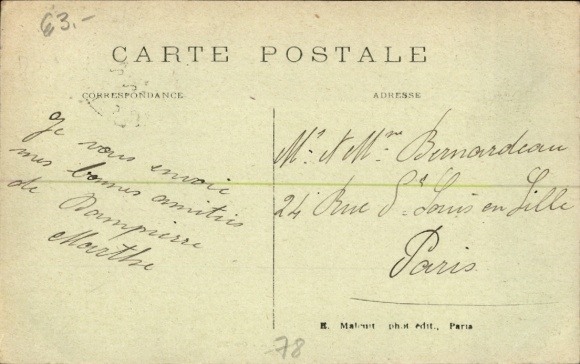 63.-
CARTE POSTALE
CORRESPONDANCE
ADRESSE
Je vous envoie
mes bonnes amitiés
de Dampierre
Marthe
Mr et Mme Bernardeau
24 Rue St Louis en Lille
Paris
E. Malcuit phot édit., Paris
78